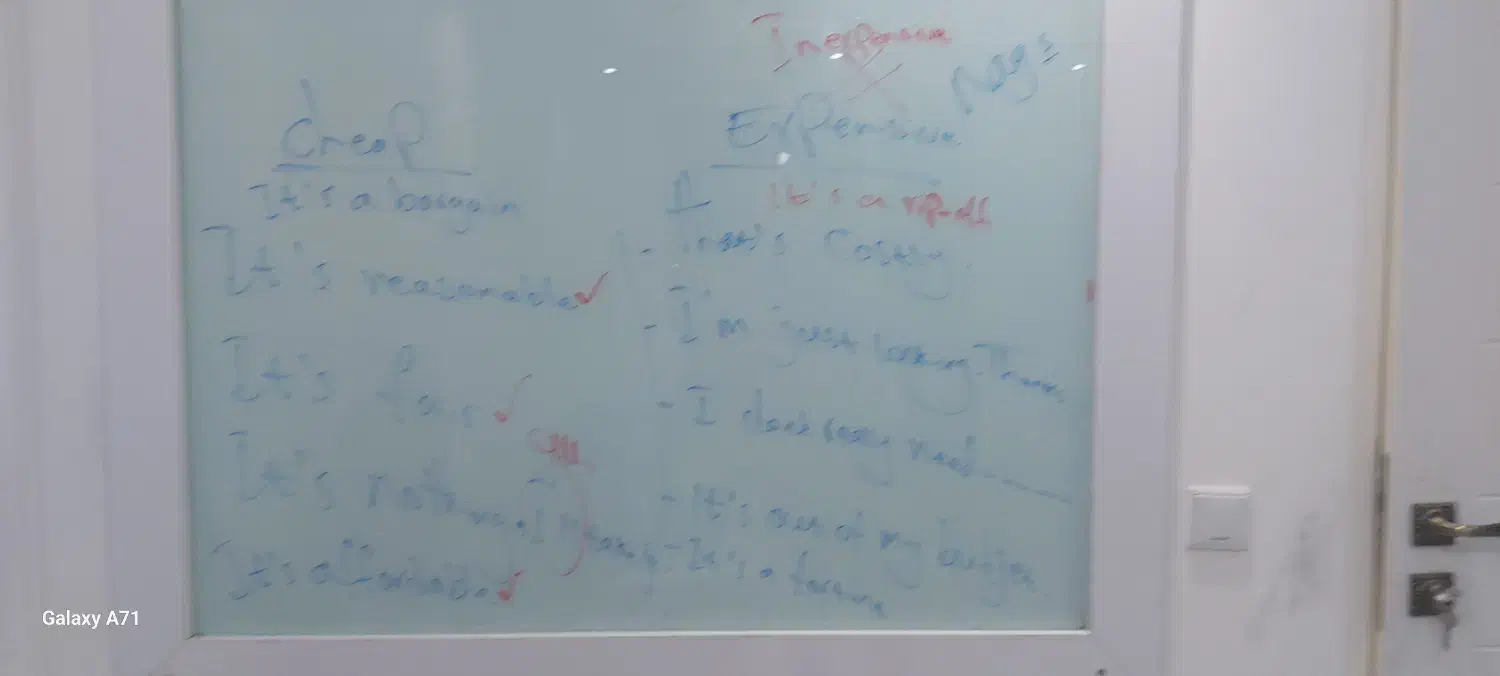 Inexpensive
Cheap
It's a bargain
It's reasonable
It's fair
It's not
It's affordable
Expensive
It's a rip-off
- That's Costly.
- I'm just looking. Thanks
- I don't really need
- It's out of my budget
- It's a fortune
Galaxy A71